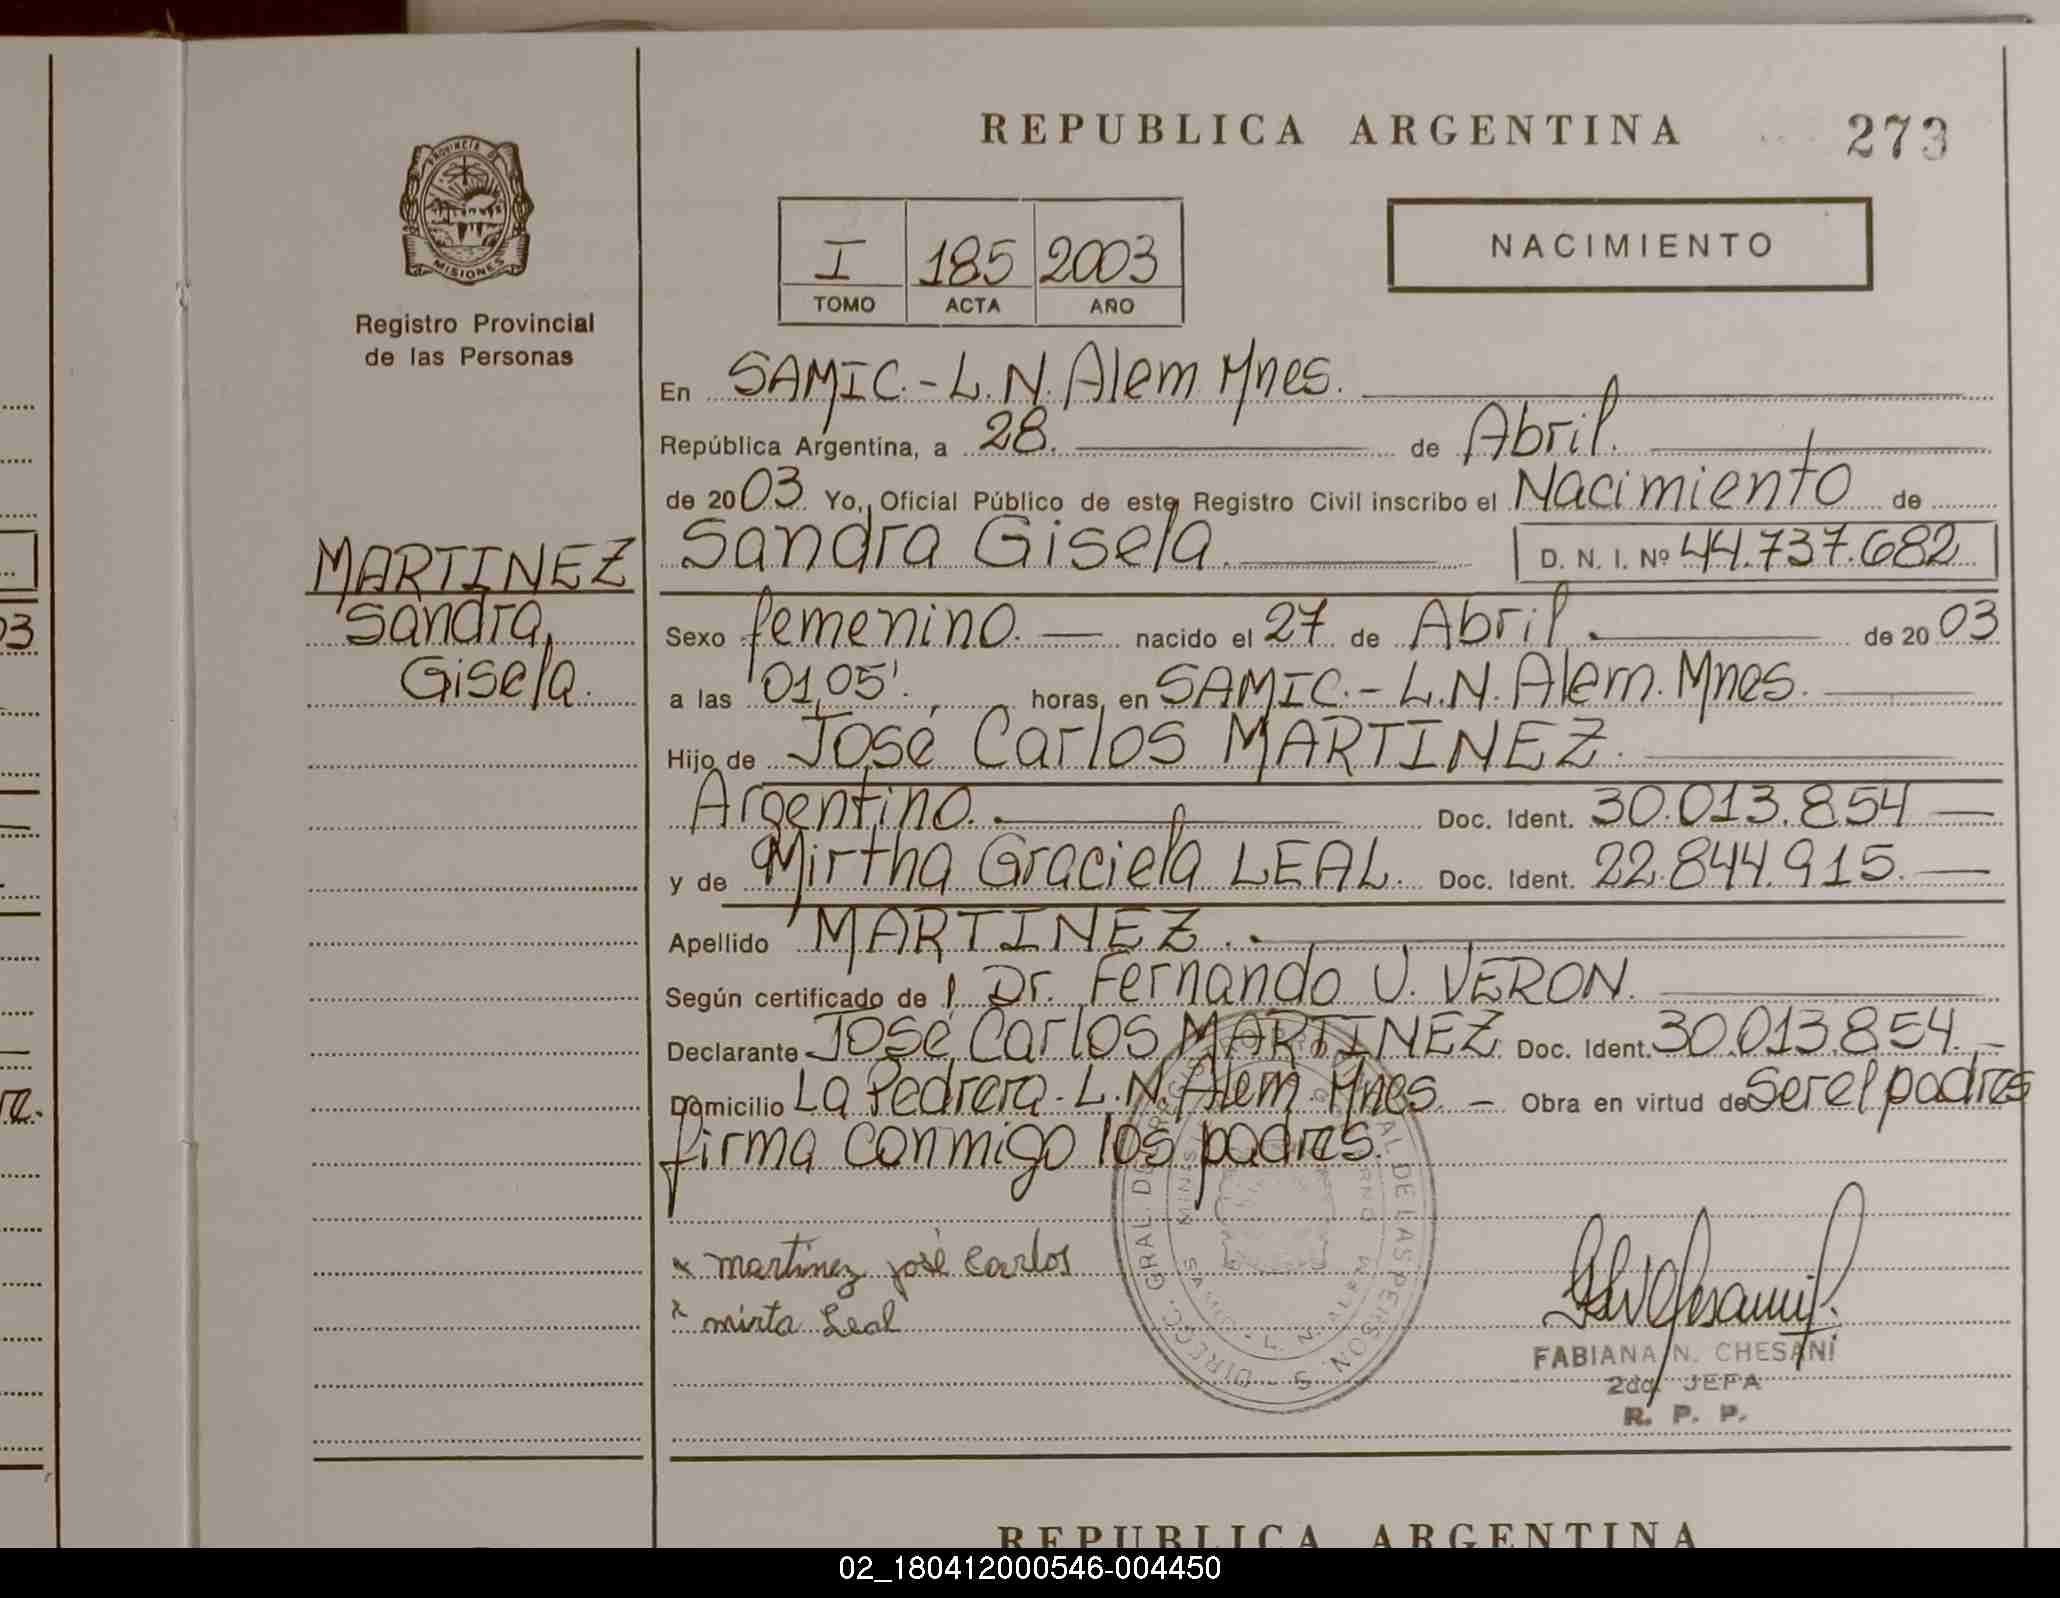 REPUBLICA ARGENTINA
273
PROVINCIA DE
MISIONES
Registro Provincial
de las Personas
I 185 2003
TOMO ACTA AÑO
NACIMIENTO
En SAMIC.-L.N. Alem Mnes.
República Argentina, a 28. de Abril.
de 2003 Yo, Oficial Público de este Registro Civil inscribo el Nacimiento de
Sandra Gisela. D. N. I. Nº 44.737.682
MARTINEZ
Sandra,
Gisela.
Sexo femenino. nacido el 27 de Abril. de 2003
a las 01,05'. horas, en SAMIC.-L.N. Alem. Mnes.
Hijo de José Carlos MARTINEZ.
Argentino. Doc. Ident. 30.013.854
y de Mirtha Graciela LEAL. Doc. Ident. 22.844.915.
Apellido MARTINEZ.
Según certificado de l Dr. Fernando U. VERON.
Declarante José Carlos MARTINEZ Doc. Ident. 30.013.854.
Domicilio La Pedrera-L.N. Alem Mnes. - Obra en virtud de Ser el padres
firma conmigo los padres.
x martinez josé Carlos
x mirta Leal
FABIANA N. CHESANI
2da. JEFA
R. P. P.
REPUBLICA ARGENTINA
02_180412000546-004450